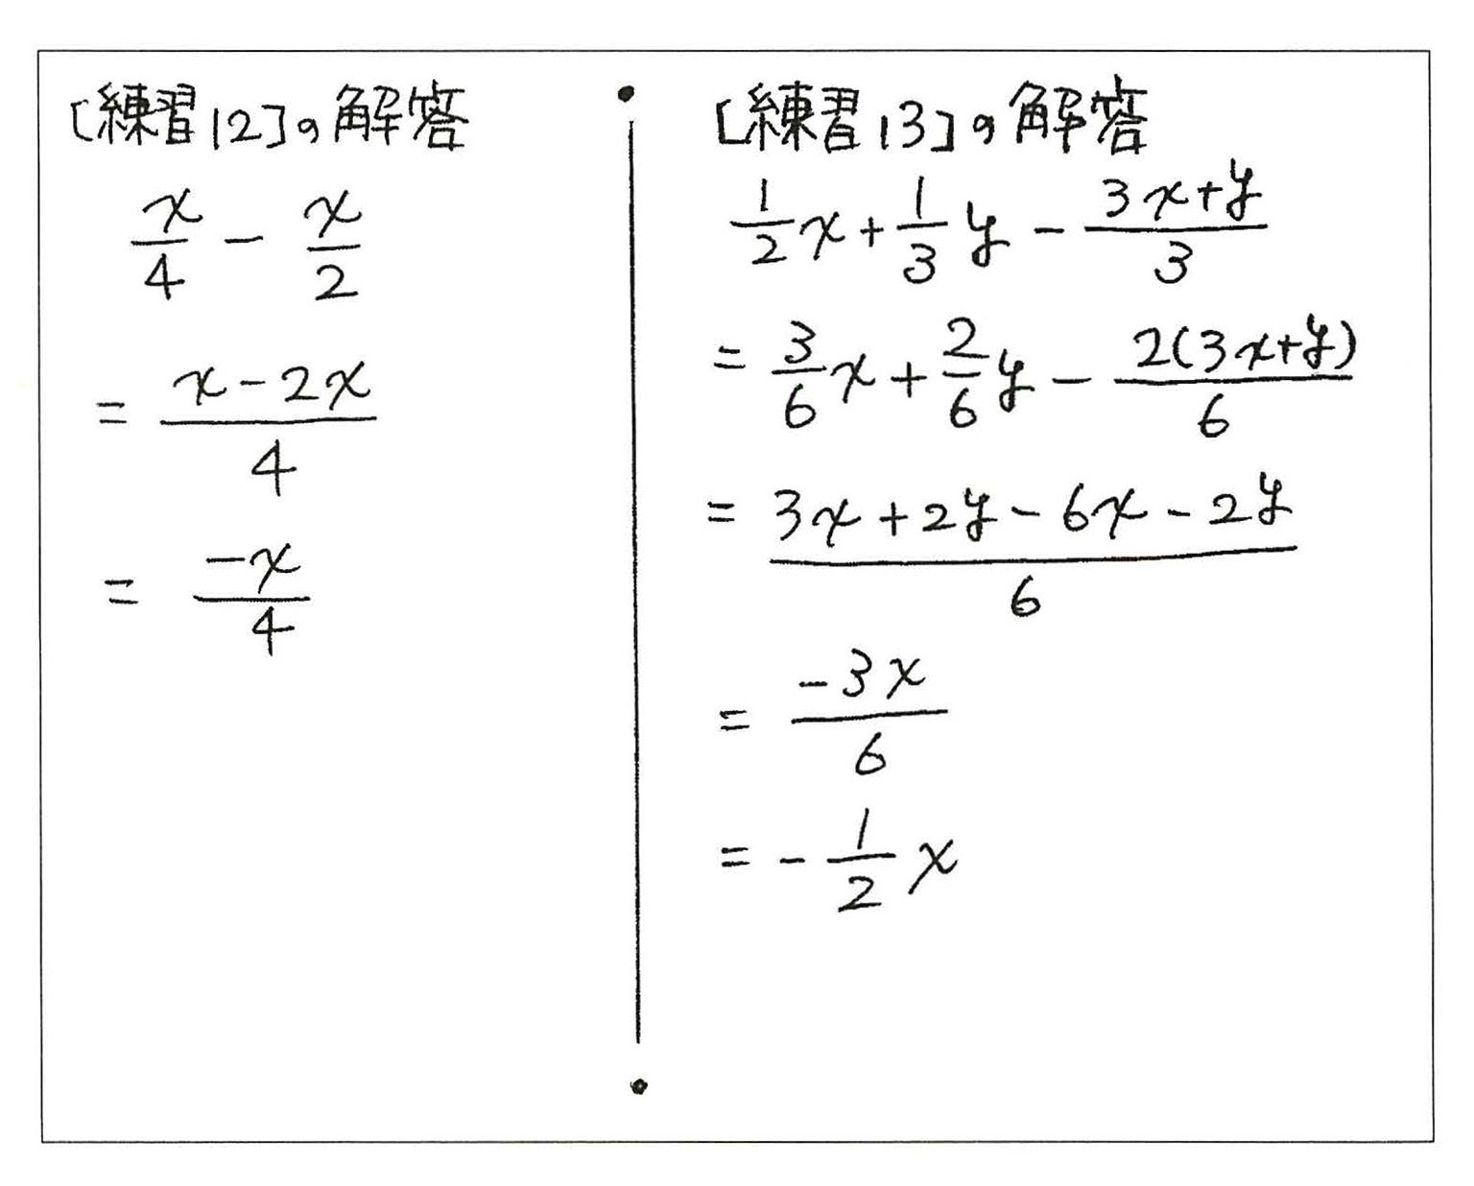 [練習12]の解答
x/4 - x/2
= (x-2x)/4
= -x/4
[練習13]の解答
1/2 x + 1/3 y - (3x+y)/3
= 3/6 x + 2/6 y - 2(3x+y)/6
= (3x+2y-6x-2y)/6
= -3x/6
= -1/2 x